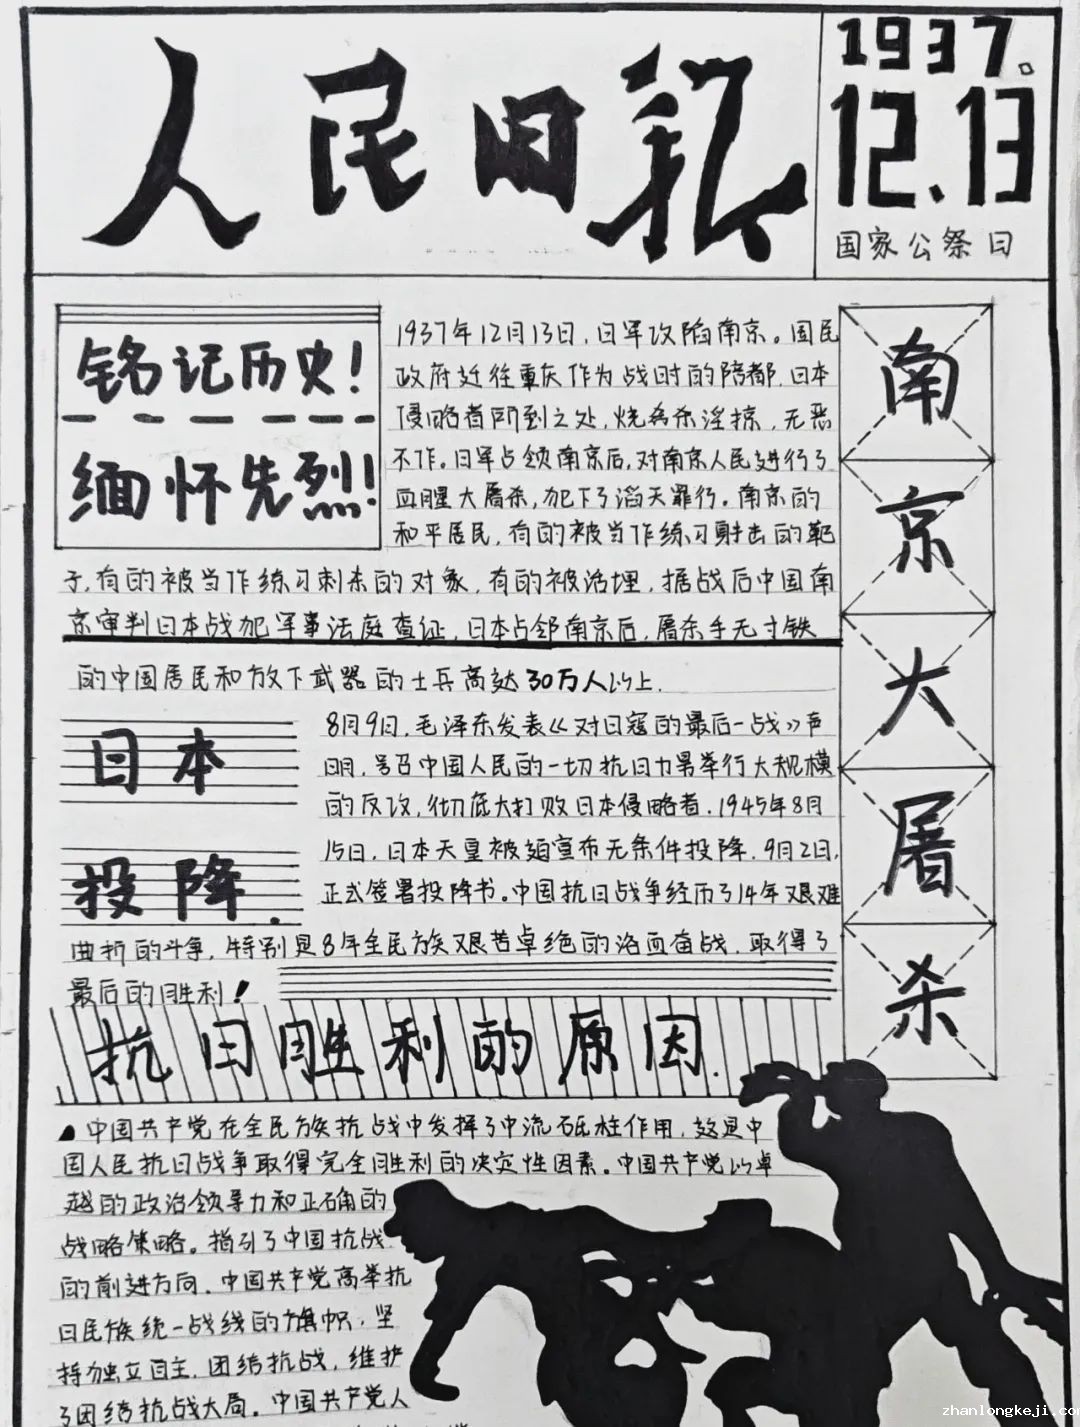 人民日报
1937。
12.13
国家公祭日
铭记历史!
缅怀先烈!
1937年12月13日,日军攻陷南京。国民
政府迁往重庆作为战时的陪都.日本
侵略者所到之处,烧杀淫掠,无恶
不作。日军占领南京后,对南京人民进行了
血腥大屠杀,犯下了滔天罪行。南京的
和平居民,有的被当作练习射击的靶
子,有的被当作练习刺杀的对象,有的被活埋,据战后中国南
京审判日本战犯军事法庭查证,日本占邻南京后,屠杀手无寸铁
的中国居民和放下武器的士兵高达30万人以上.
南
京
大
屠
杀
日本
投降.
8月9日,毛泽东发表《对日寇的最后一战》声
明,号召中国人民的一切抗日力男举行大规模
的反攻,彻底大打败日本侵略者.1945年8月
15日,日本天皇被迫宣布无条件投降.9月2日,
正式签署投降书。中国抗日战争经历了14年艰难
曲折的斗争,特别是8年全民族艰苦卓绝的浴血奋战.取得了
最后的胜利!
抗日胜利的原因.
中国共产党在全民族抗战中发挥了中流砥柱作用,这是中
国人民抗日战争取得完全胜利的决定性因素.中国共产党以卓
越的政治领导力和正确的
战略策略。指引了中国抗战
的前进方向.中国共产党高举抗
日民族统一战线的旗帜,坚
持独立自主.团结抗战,维护
了团结抗战大局。中国共产党人
zhanlongkeji.co